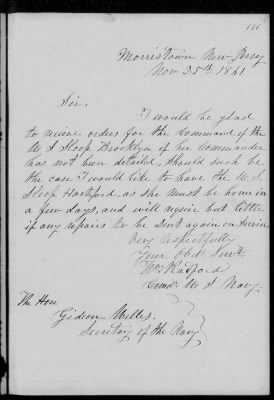 Morristown New Jersey
Nov 25th 1861
Sir,
I would be glad
to receive orders for the command of the
U S Sloop Brooklyn if her Commander
has not been detailed, should such be
the case I would like to have the U. S.
Sloop Hartford, as she must be home in
a few days, and will require but little
if any repairs to be sent again on Service
Very respectfully
Your Obdt Servt
Wm Radford
Comdr U S Navy
The Hon
Gideon Welles.
Secretary of the Navy